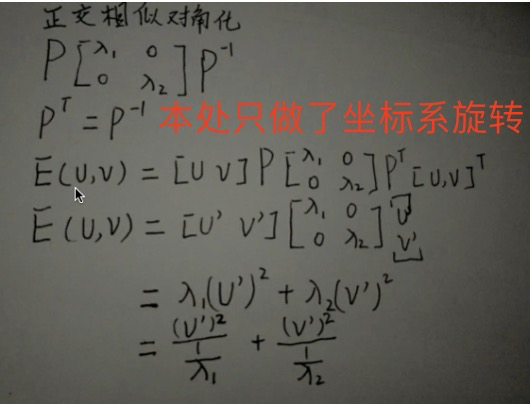 正交相似对角化
P [λ₁ 0; 0 λ₂] P⁻¹
Pᵀ = P⁻¹ 本处只做了坐标系旋转
E(U,V) = [U V] P [λ₁ 0; 0 λ₂] Pᵀ [U,V]ᵀ
E(U,V) = [U' V'] [λ₁ 0; 0 λ₂] [U'; V']
= λ₁(U')² + λ₂(V')²
= (U')²/(1/λ₁) + (V')²/(1/λ₂)